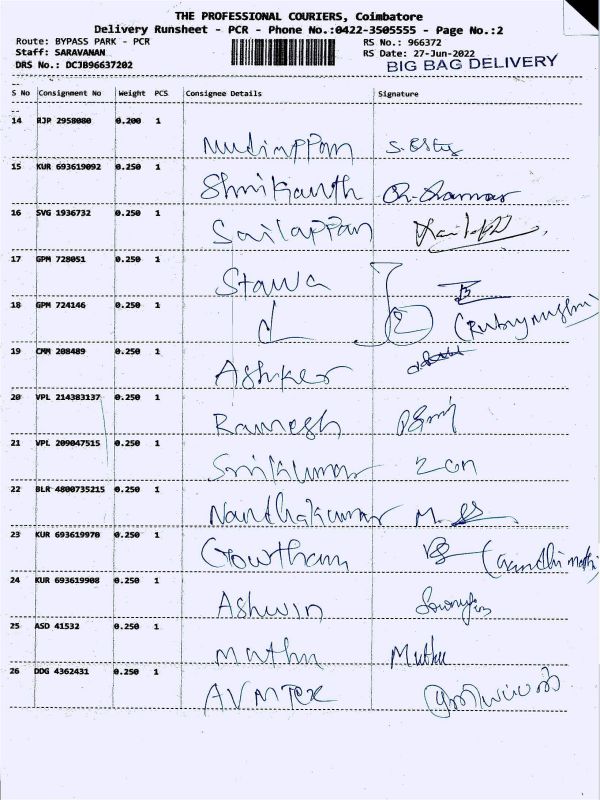 THE PROFESSIONAL COURIERS, Coimbatore
Delivery Runsheet - PCR - Phone No.:0422-3505555 - Page No.:2
Route: BYPASS PARK - PCR
RS No.: 966372
Staff: SARAVANAN
RS Date: 27-Jun-2022
DRS No.: DCJB96637202
BIG BAG DELIVERY
S No Consignment No Weight PCS Consignee Details Signature
14 RJP 2958080 0.200 1
15 KUR 693619092 0.250 1 Shrikanth
16 SVG 1936732 0.250 1 Sailappan
17 GPM 728051 0.250 1
18 GPM 724146 0.250 1
19 CMM 208489 0.250 1 Ashker
20 VPL 214383137 0.250 1 Ramesh
21 VPL 209047515 0.250 1 Srikumar
22 BLR 4800735215 0.250 1 Nandhakumar
23 KUR 693619970 0.250 1 Gowtham
24 KUR 693619908 0.250 1 Ashwin
25 ASD 41532 0.250 1 Muthu Muthu
26 DDG 4362431 0.250 1 AVM TEX